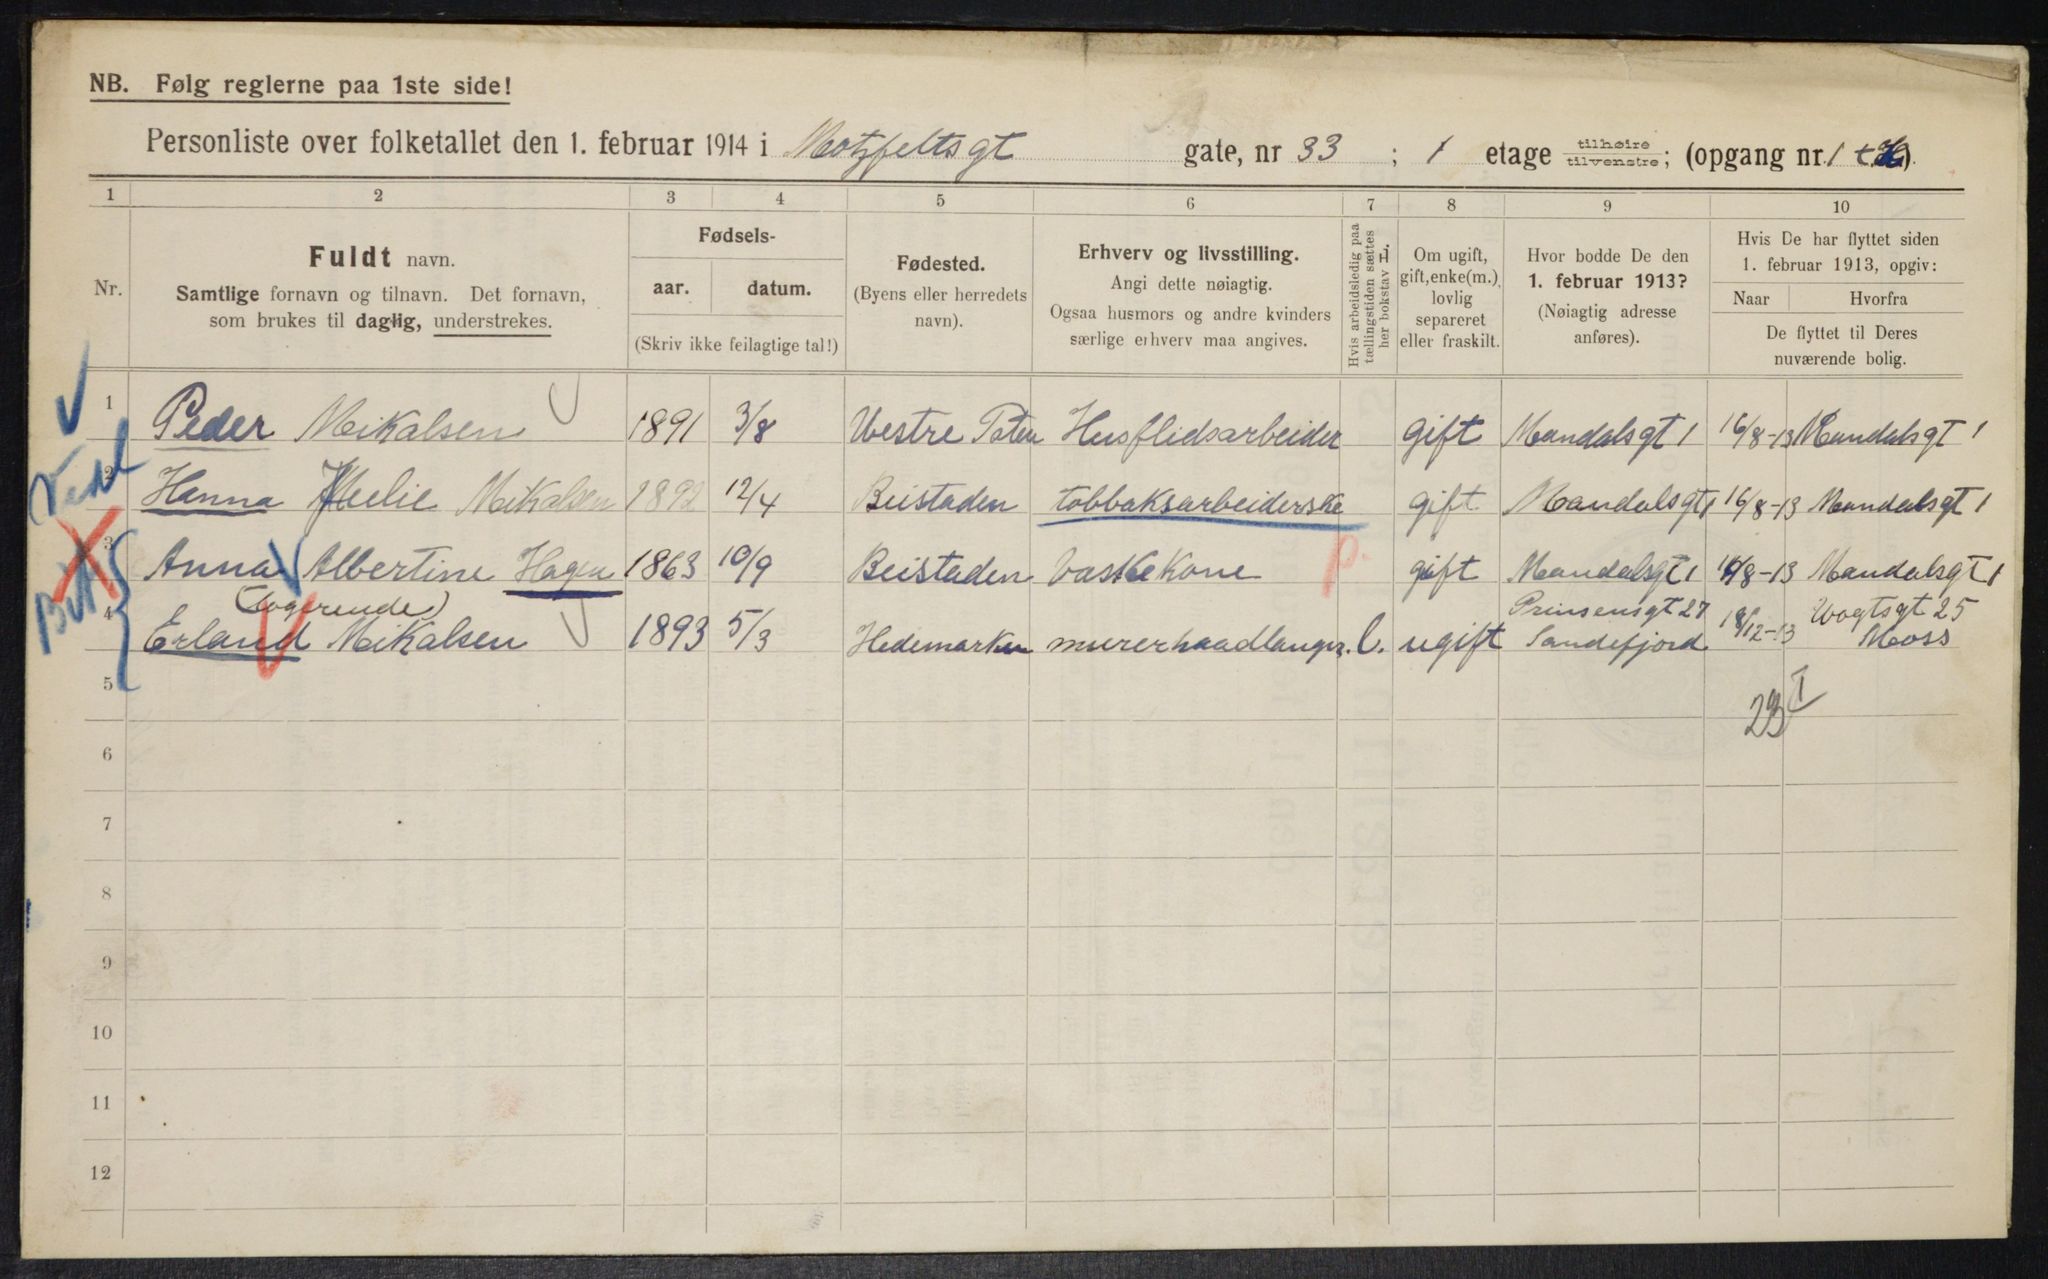 NB. Følg reglerne paa 1ste side!
Personliste over folketallet den 1. februar 1914 i Motzfeltsgt gate, nr 33 ; 1 etage tilhøire tilvenstre; (opgang nr. 1 )
1 2 3 4 5 6 7 8 9 10
Nr.
Fuldt navn.
Samtlige fornavn og tilnavn. Det fornavn,
som brukes til daglig, understrekes.
Fødsels-
aar. datum.
(Skriv ikke feilagtige tal!)
Fødested.
(Byens eller herredets
navn).
Erhverv og livsstilling.
Angi dette nøiagtig.
Ogsaa husmors og andre kvinders
særlige erhverv maa angives.
Hvis arbeidsledig paa
tællingstiden sættes
her bokstav L.
Om ugift,
gift, enke(m.),
lovlig
separeret
eller fraskilt.
Hvor bodde De den
1. februar 1913?
(Nøiagtig adresse
anføres).
Hvis De har flyttet siden
1. februar 1913, opgiv:
Naar Hvorfra
De flyttet til Deres
nuværende bolig.
1 Peder Mikalsen 1891 3/8 Vestre Toten Husflidsarbeider gift Mandalsgt 1 16/8-13 Mandalsgt 1
2 Hanna Melie Mikalsen 1892 12/4 Beistaden tobbaksarbeiderske gift Mandalsgt 1 16/8-13 Mandalsgt 1
3 Anna Albertine Hagen 1863 10/9 Beistaden Vaskekone gift Mandalsgt 1 16/8-13 Mandalsgt 1
(logerende) Prinsensgt 27 Vogtsgt 25
4 Erland Mikalsen 1893 5/3 Hedemarken murerhaadlanger. l. ugift Sandefjord 18/12-13 Moss
5
23 I
6
7
8
9
10
11
12